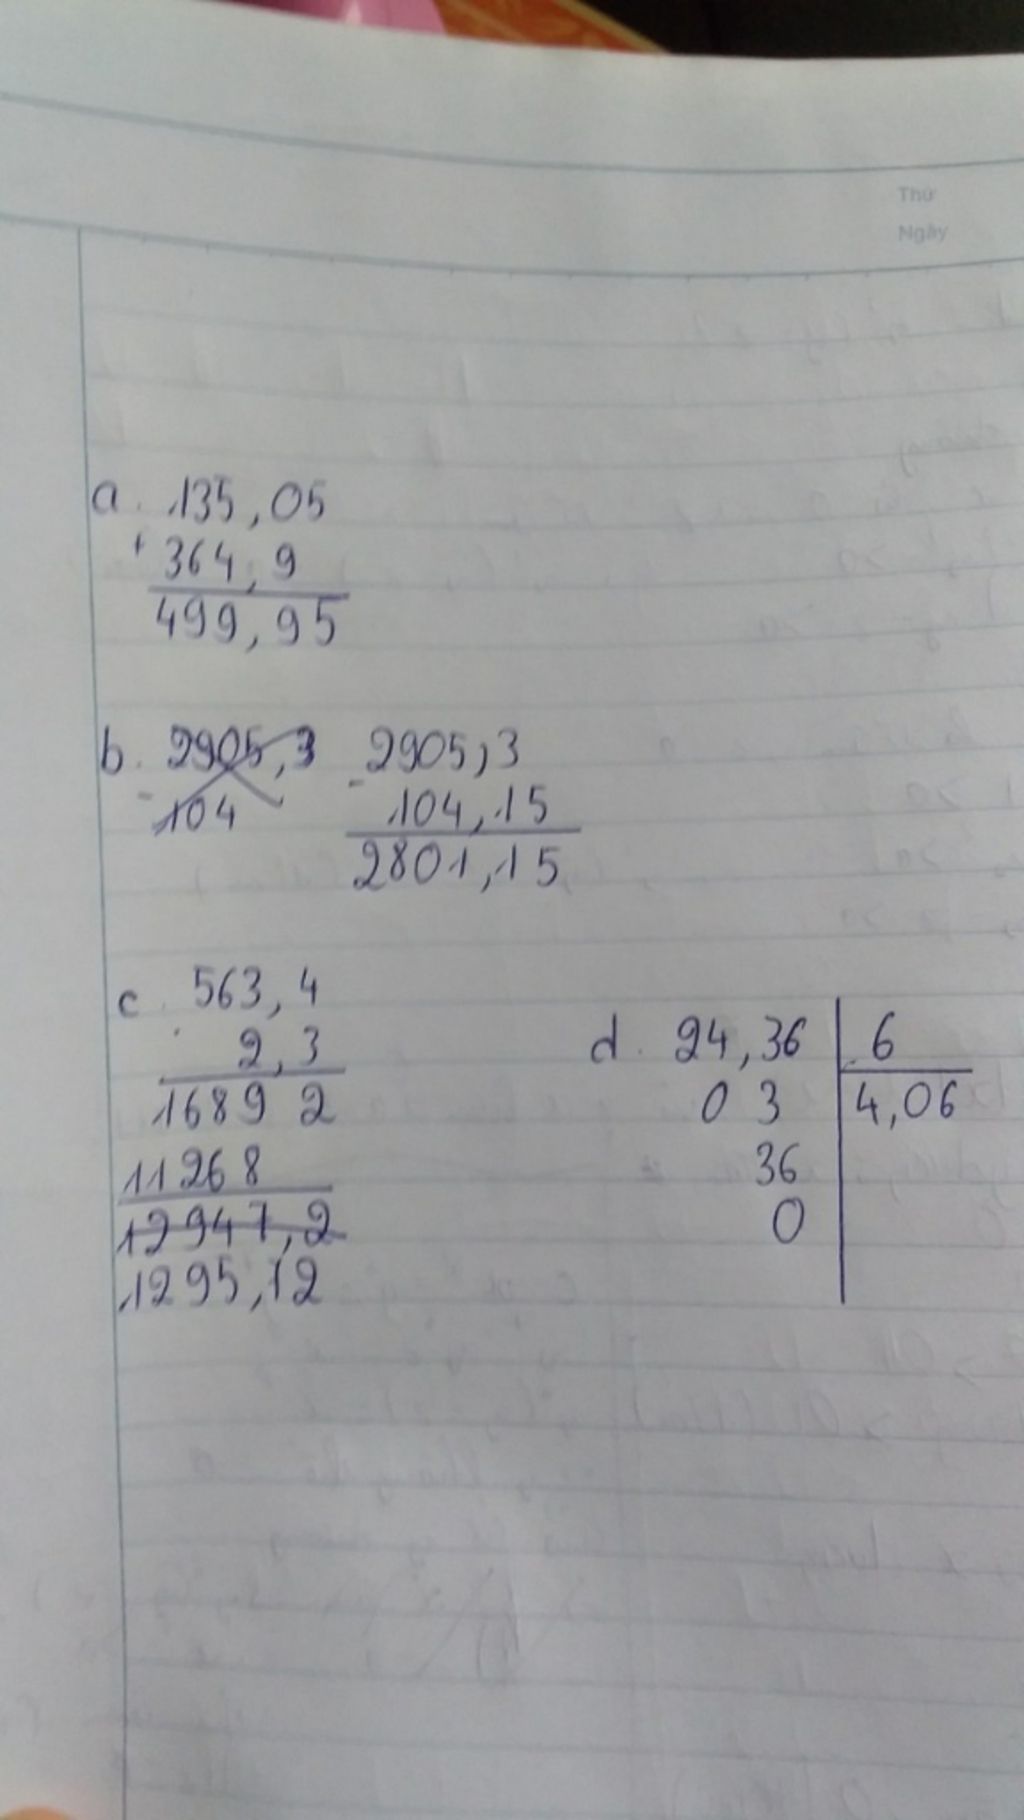 Thứ
Ngày
a. 135,05
+ 364,9
499,95
b. 2905,3 2905,3
- 104 - 104,15
2801,15
c. 563,4
. 2,3
1689 2
11268
12947,2
1295,12
d. 24,36 6
0 3 4,06
36
0